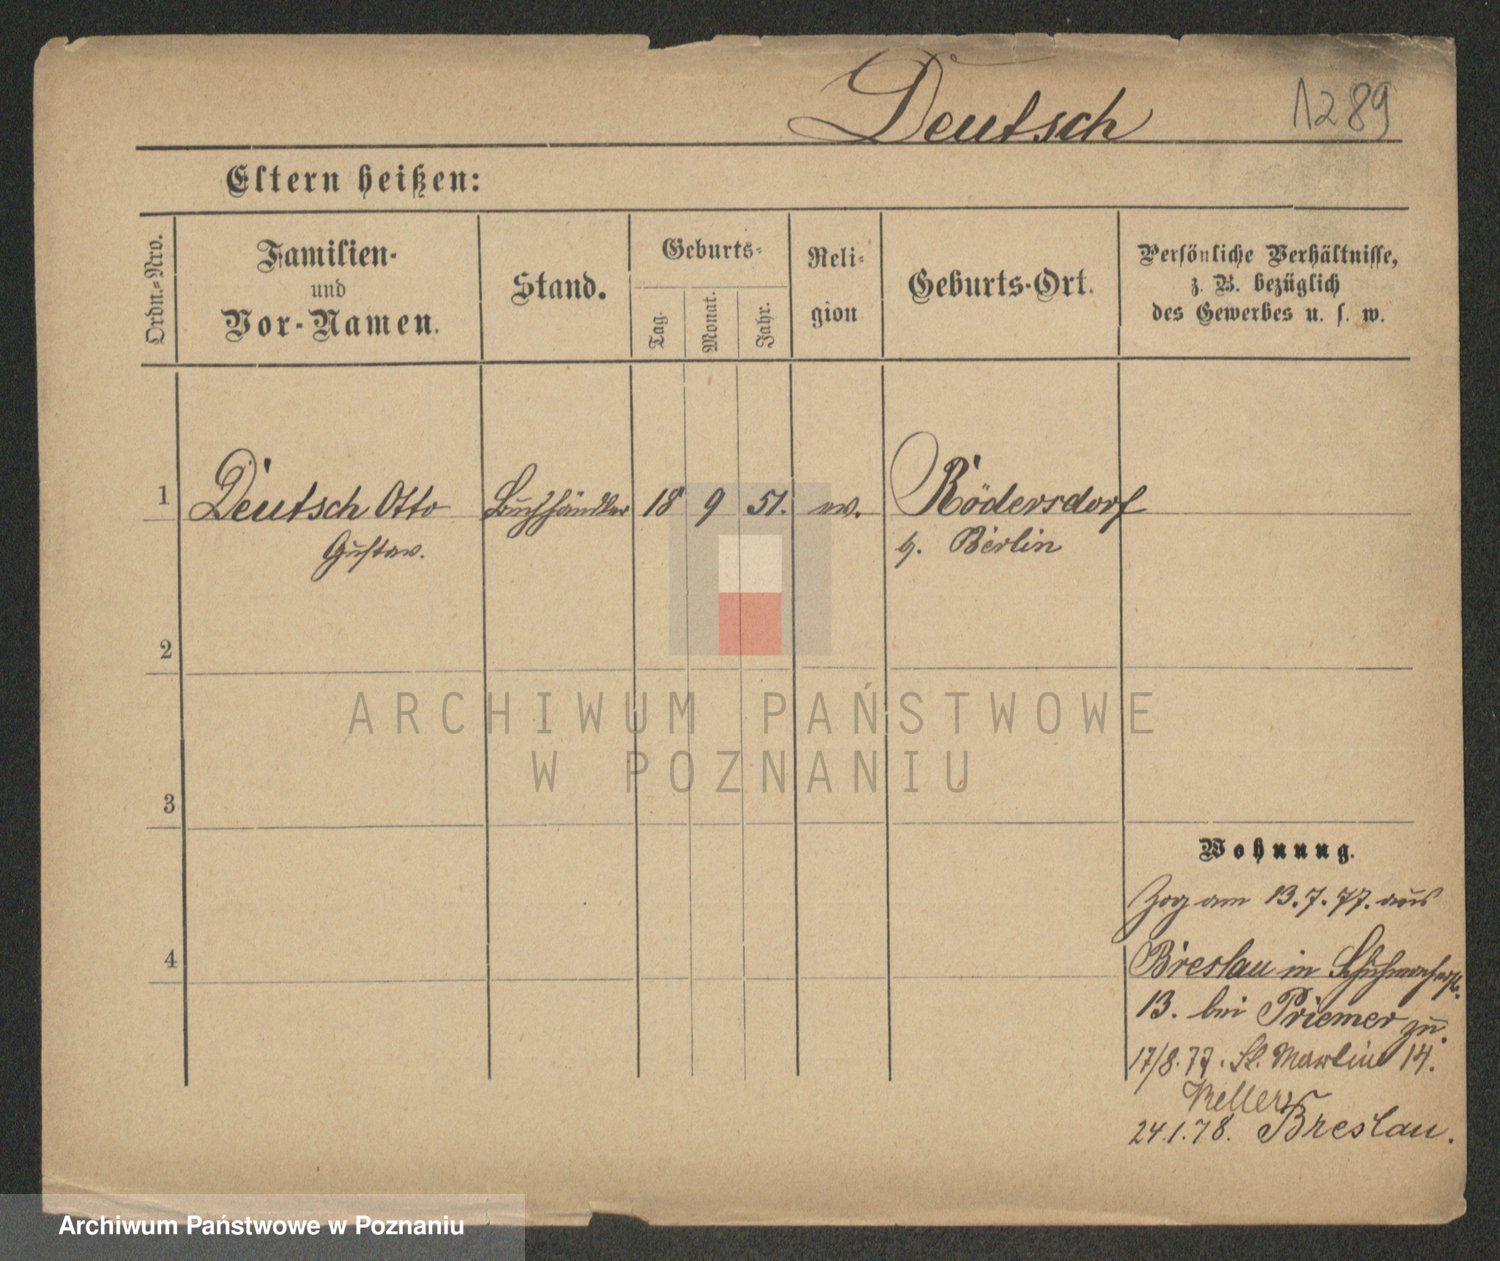 Deutsch 1289
Eltern heißen:
Ordn.-Nro.
Familien-
und
Vor-Namen.
Stand.
Geburts-
Tag.
Monat.
Jahr.
Reli-
gion
Geburts-Ort.
Persönliche Verhältnisse,
z. B. bezüglich
des Gewerbes u. s. w.
1 Deutsch Otto Buchhändler 18 9 51. ev. Rödersdorf
Gustav. b. Berlin
2
ARCHIWUM PAŃSTWOWE
W POZNANIU
3
Wohnung.
Zog am 13.7.77. aus
4
Breslau in Schuhmacherst.
13. bei Priemer zu.
17/8.77. St. Martin 14.
Keller
24.1.78. Breslau.
Archiwum Państwowe w Poznaniu